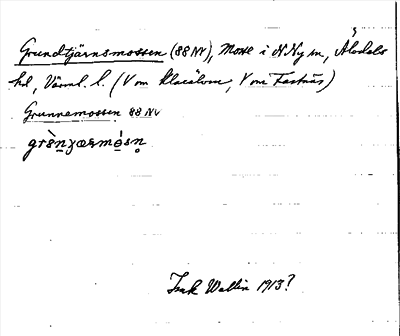 Grundtjärnsmossen (88 NV), Mosse i N Ny sn, Älvdals
hd, Värml. l. (V om Klarälven, V om Fastnäs)
Grunnemossen 88 NV
Isak Wallin 1913?